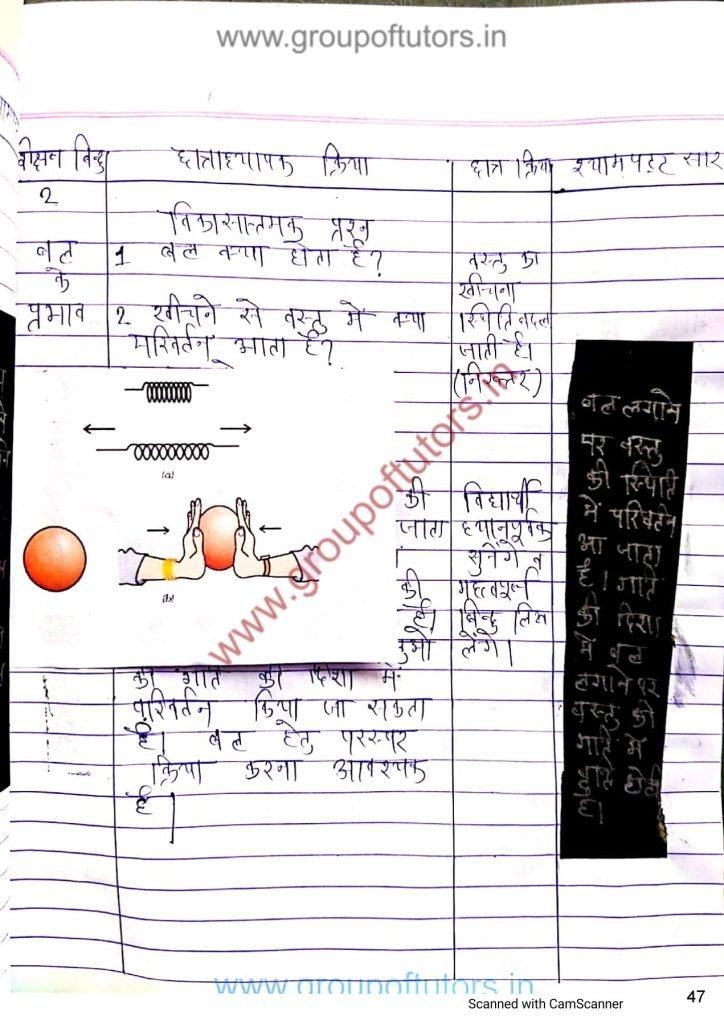 www.groupoftutors.in
शिक्षण बिन्दु छात्राध्यापक क्रिया छात्र क्रिया श्यामपट्ट सार
2
विकासात्मक प्रश्न
बल
के
प्रभाव
1 बल क्या होता है?
2 खींचने से वस्तु में क्या
परिवर्तन आता है?
वस्तु का
खींचना
स्थिति बदल
जाती है।
(निरुत्तर)
(a)
(b)
की
जाता
की
है।
को गति की दिशा में
परिवर्तन किया जा सकता
है। बल हेतु परस्पर
क्रिया करना आवश्यक
है।
विद्यार्थी
ध्यानपूर्वक
सुनेंगे व
महत्वपूर्ण
बिन्दु लिख
लेंगे।
बल लगाने
पर वस्तु
की स्थिति
में परिवर्तन
आ जाता
है। गति
की दिशा
में बल
लगाने पर
वस्तु की
गति में
है।
www.groupoftutors.in
www.groupoftutors.in
Scanned with CamScanner
47